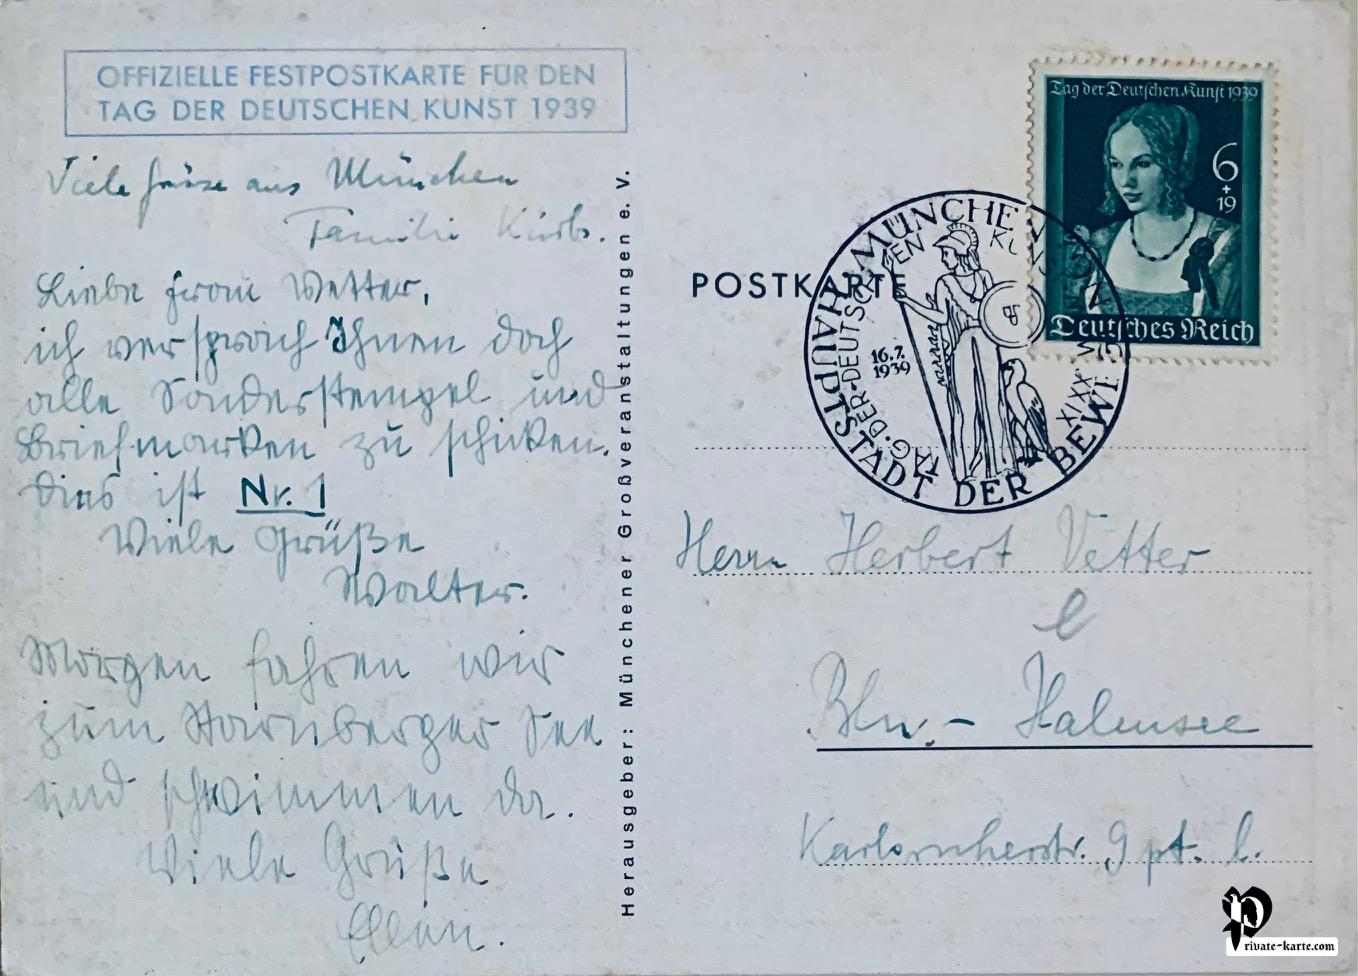 OFFIZIELLE FESTPOSTKARTE FÜR DEN
TAG DER DEUTSCHEN KUNST 1939
Viele Grüsse aus München
Familie
Liebe Frau Vetter,
ich versprach Ihnen doch
alle Sonderstempel und
Briefmarken zu schicken.
Dies ist Nr. 1
Viele Grüße
Walter.
Morgen fahren wir
zum Starnberger See
und schwimmen da.
Viele Grüße
Ellen.
Herausgeber: Münchener Großveranstaltungen e. V.
POSTKARTE
Tag der Deutschen Kunst 1939
6
+
19
Deutsches Reich
MÜNCHEN
HAUPTSTADT DER BEWE
TAG·DER·DEUTSCHEN KUNST
16.7.
1939
MCMXXXIX
Herrn Herbert Vetter
Bln.- Halensee
Karlsruherstr. 9 pt. l.
Private-karte.com